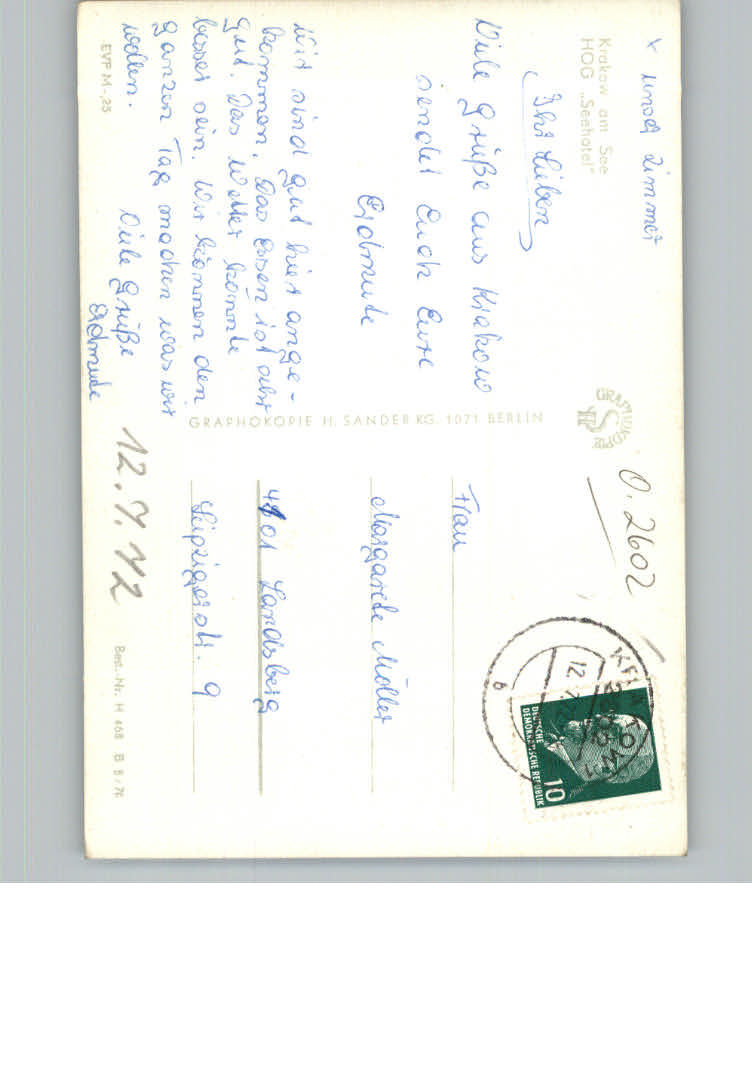 x unser Zimmer
Krakow am See
HOG „Seehotel"
Ihr Lieben
Viele Grüße aus Krakow
sendet Euch Eure
Erdmute
Wir sind gut hier ange-
kommen. Das Essen ist sehr
gut. Das Wetter könnte
besser sein. Wir können den
ganzen Tag machen was wir
wollen.
Viele Grüße
Erdmute
EVP M -,25
GRAPHOKOPIE H. SANDER KG. 1071 BERLIN
GRAPHOKOPIE
O. 2602
12. 7. 72
DEUTSCHE
DEMOKRATISCHE REPUBLIK
10
Frau
Margarete Müller
4101 Landsberg
Leipzigerstr. 9
Best.-Nr. H 468